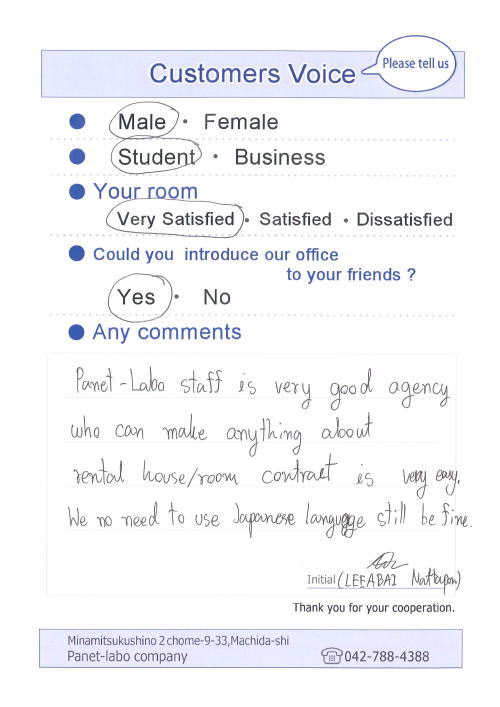 Customers Voice
Please tell us
● Male • Female
● Student • Business
● Your room
Very Satisfied • Satisfied • Dissatisfied
● Could you introduce our office
to your friends ?
Yes • No
● Any comments
Panet-Labo staff is very good agency
who can make anything about
rental house/room contract is very easy.
We no need to use Japanese langugge still be fine.
Initial (LEEABAI Nattapon)
Thank you for your cooperation.
Minamitsukushino 2 chome-9-33,Machida-shi
Panet-labo company
042-788-4388